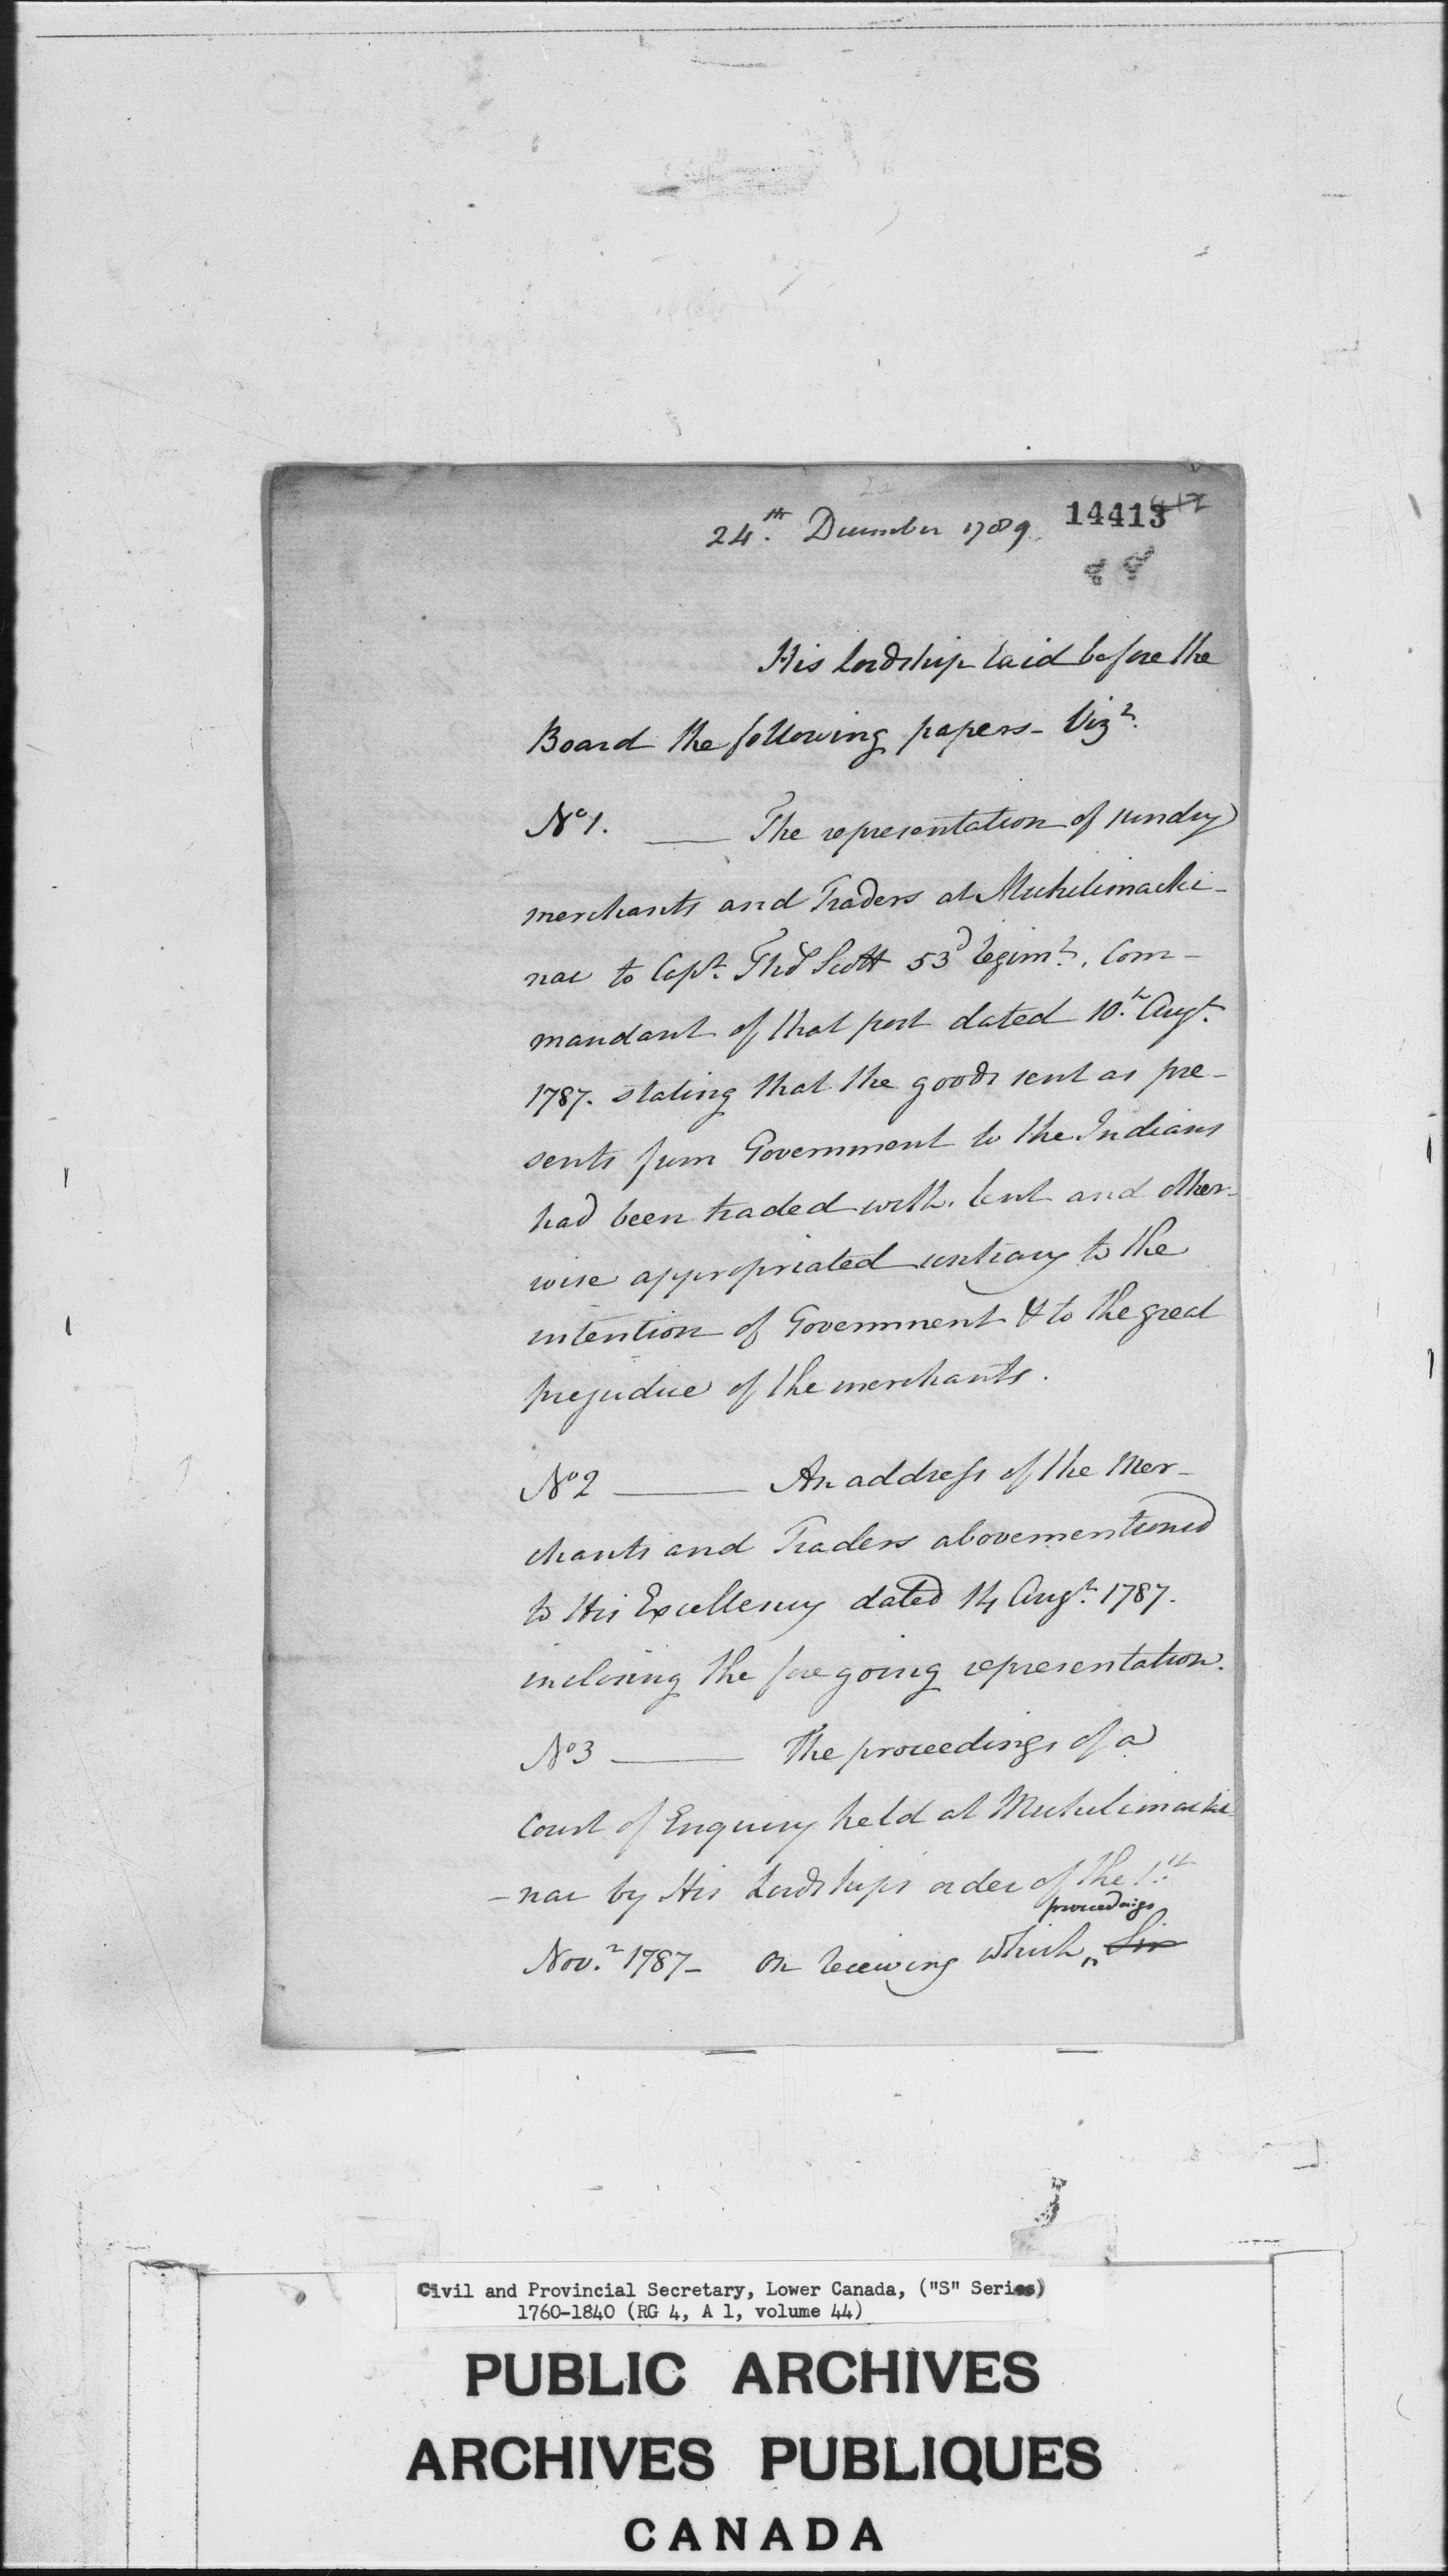 24.th December 1789. 14413
His Lordship laid before the
Board the following papers - Vizt.
No 1. ___ The representation of sundry
merchants and Traders at Michilimacki-
nac to Capt. Thos Scott 53d Regimt. Com-
mandant of that post dated 10.th Augt.
1787. stating that the goods sent as pre-
sents from Government to the Indians
had been traded with, lent and other-
wise appropriated contrary to the
intention of Government & to the great
prejudice of the merchants.
No 2 ___ An address of the Mer-
chants and Traders abovementioned
to His Excellency dated 14 Augt. 1787.
inclosing the foregoing representation.
No 3 ___ The proceedings of a
Court of Enquiry held at Michilimacki
-nac by His Lordships order of the 1.st
proceedings
Novr. 1787 - On receiving which " Sir
Civil and Provincial Secretary, Lower Canada, ("S" Series)
1760-1840 (RG 4, A 1, volume 44)
PUBLIC ARCHIVES
ARCHIVES PUBLIQUES
CANADA